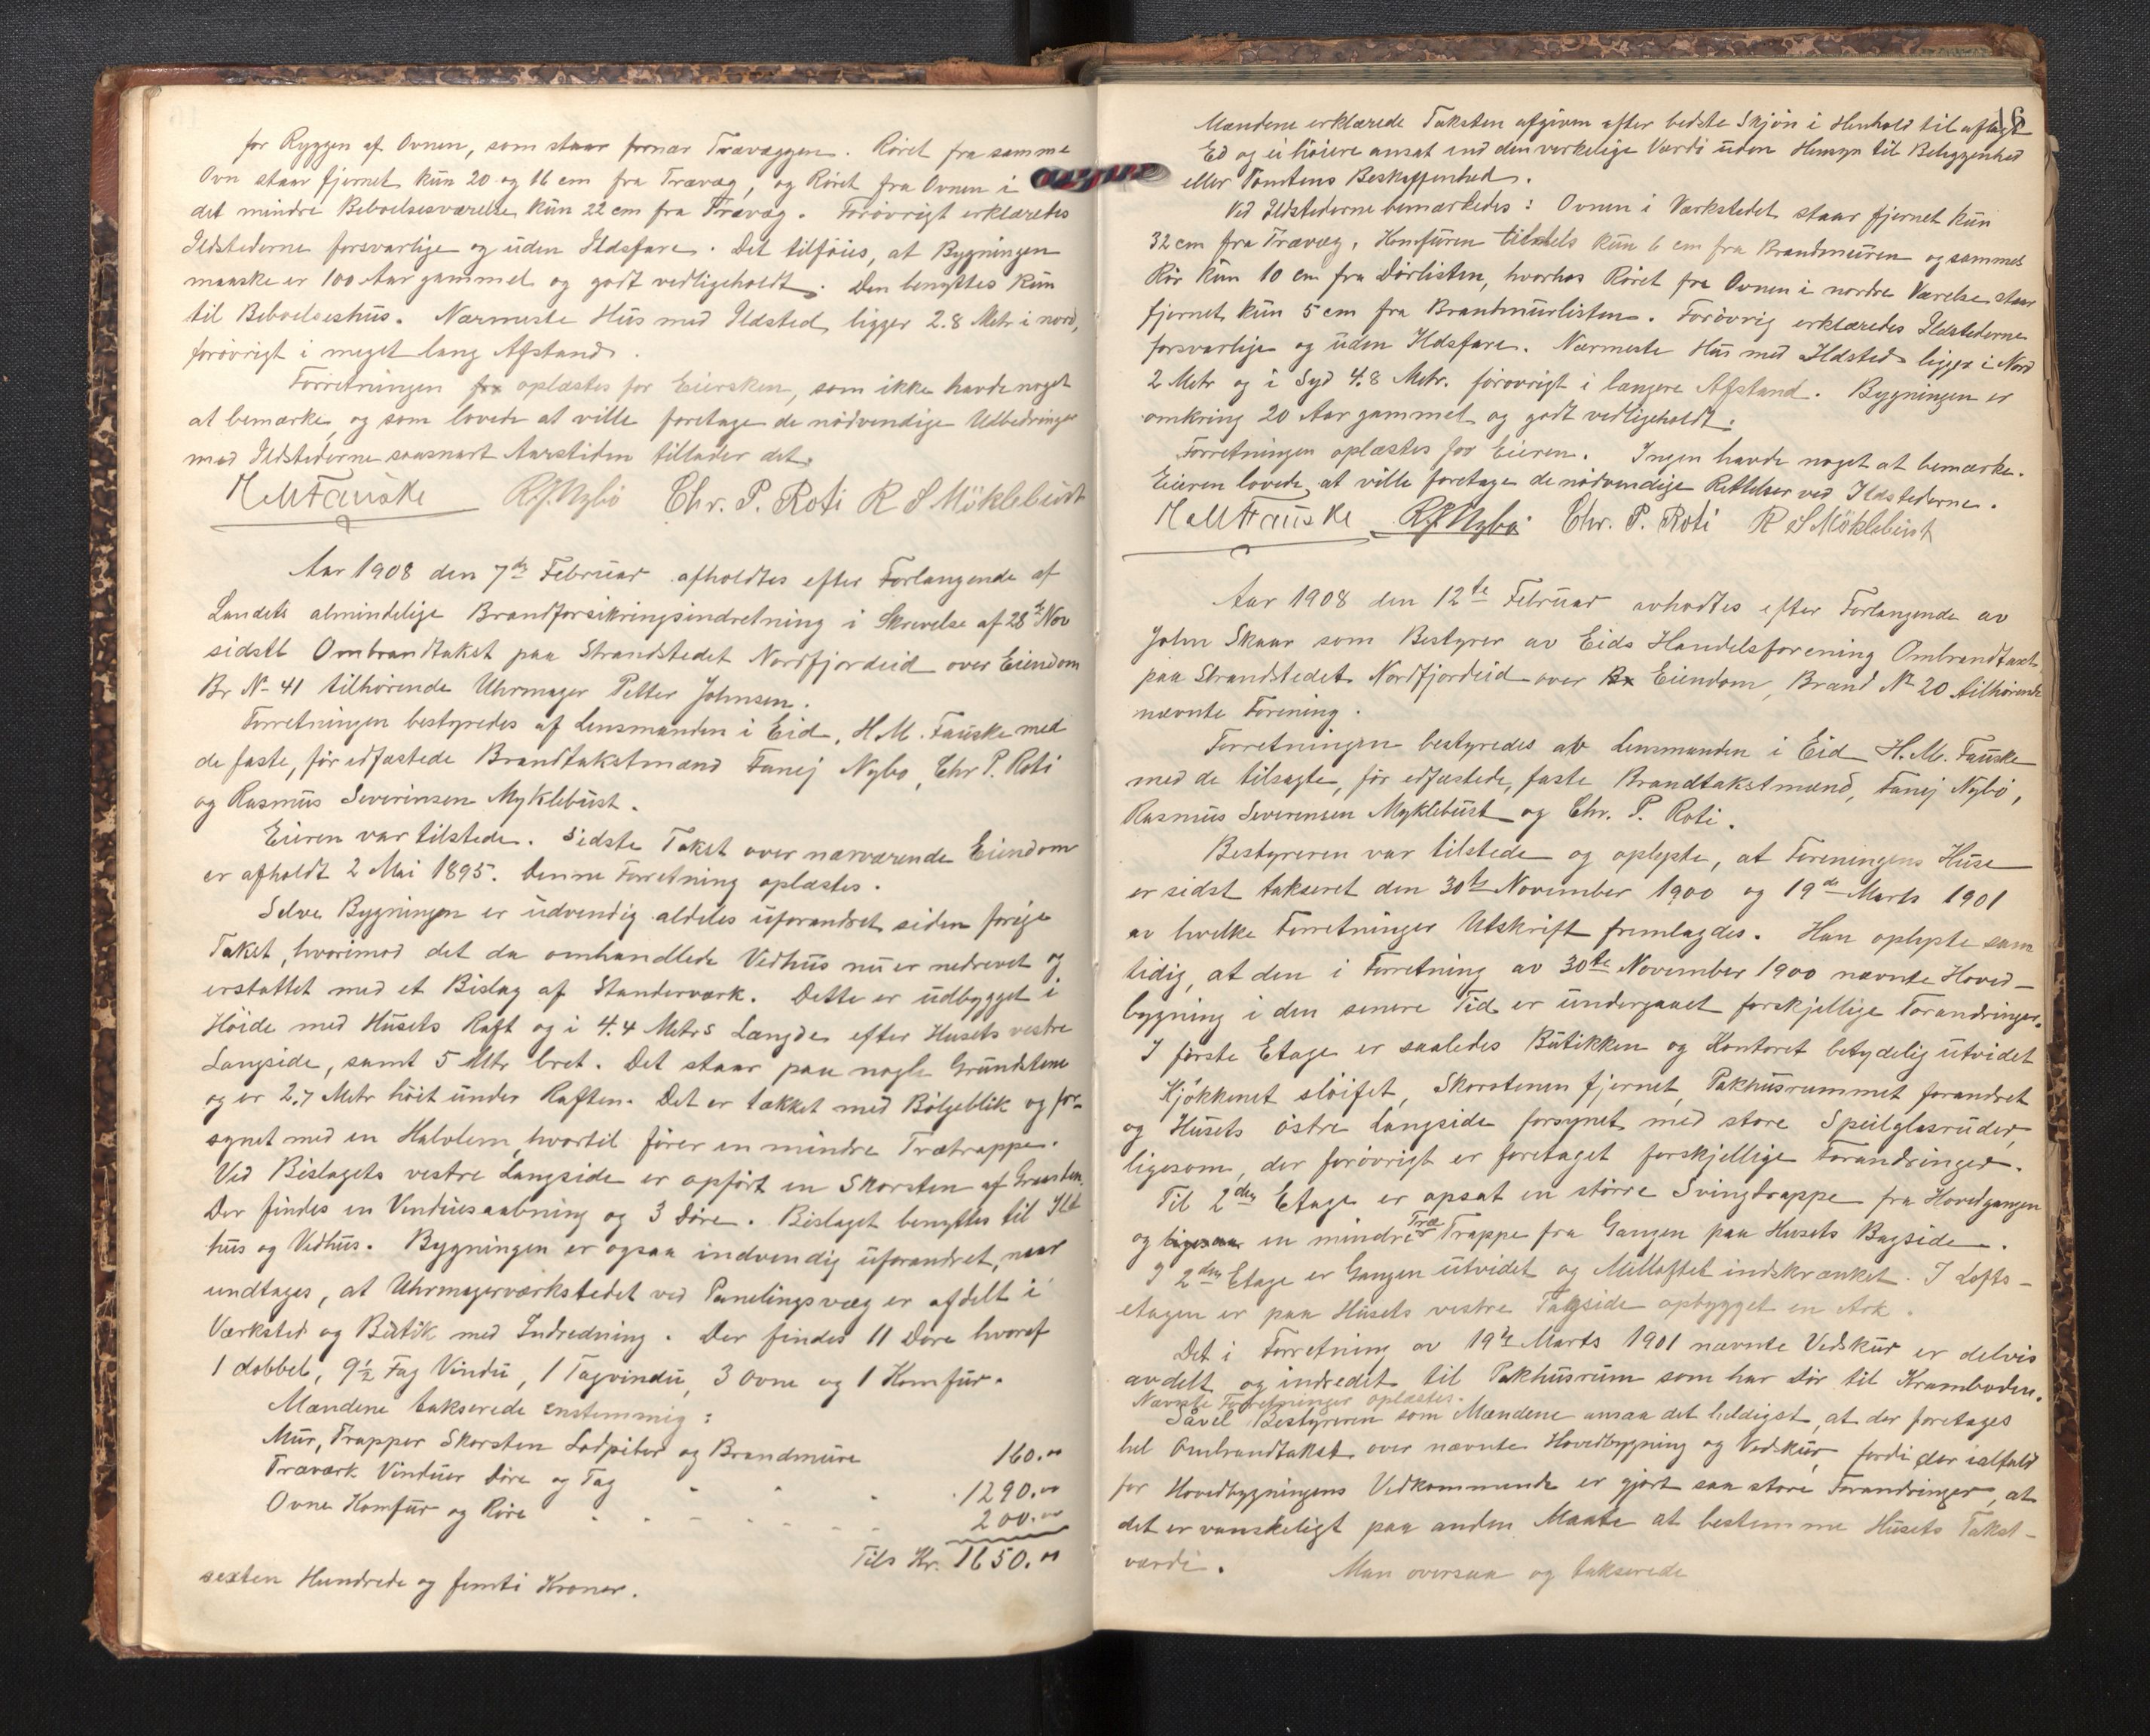 for Ryggen af Ovnen, som staar fornær Trævæggen. Røret fra samme
Ovn staar fjernet kun 20 og 16 cm fra Trævæg, og Røret fra Ovnen i
det mindre Beboelsesværelse kun 22 cm fra Trævæg. Forøvrigt erklæredes
Ildstederne forsvarlige og uden Ildsfare. Det tilføies, at Bygningen
maaske er 100 Aar gammel og godt vedligeholdt. Den benyttes kun
til Beboelseshus. Nærmeste Hus med Ildsted ligger 2.8 Metr i nord,
forøvrigt i meget lang Afstand.
Forretningen oplæstes for Eiersken, som ikke havde noget
at bemærke, og som lovede at ville foretage de nødvendige Udbedringer
med Ildstederne saasnart Aarstiden tillader det.
H M Fauske R.J. Nybö Chr. P. Roti R S Möklebust
Aar 1908 den 7de Februar afholdtes efter Forlangende af
Landets almindelige Brandforsikringsindretning i Skrivelse af 28de Nov
sidstl Ombrandtakst paa Strandstedet Nordfjordeid over Eiendom
Br No 41 tilhørende Uhrmager Petter Johnsen.
Forretningen bestyredes af Lensmanden i Eid, H.M. Fauske med
de faste, før edfæstede Brandtakstmænd Fanej Nybø, Chr P. Roti
og Rasmus Severinsen Myklebust.
Eieren var tilstede. Sidste Takst over nærværende Eiendom
er afholdt 2 Mai 1895. Denne Forretning oplæstes.
Selve Bygningen er udvendig aldeles uforandret siden forige
Takst, hvorimod det da omhandlede Vedhus nu er nedrevet og
erstattet med et Bislag af Standerværk. Dette er udbygget i
Høide med Husets Raft og i 4.4 Metrs Længde efter Husets vestre
Langside, samt 5 Mtr bret. Det staar paa nogle Grundstene
og er 2.7 Metr høit under Raften. Det er tækket med Bølgeblik og for-
synet med en Halvlem, hvortil fører en mindre Trætrappe.
Ved Bislagets vestre Langside er opført en Skorsten af Graasten.
Der findes en Vinduesaabning og 3 Døre. Bislaget benyttes til Ild
hus og Vedhus. Bygningen er ogsaa indvendig uforandret, naar
undtages, at Uhrmagerværkstedet ved Panelingsvæg er afdelt i
Værksted og Butik med Indredning. Der findes 11 Døre hvoraf
1 dobbel, 9½ Fag Vindu, 1 Tagvindu, 3 Ovne og 1 Komfur.
Mændene takserede enstemmig:
Mur, Trapper Skorsten Lodpiber og Brandmure 160.00
Træværk Vinduer Døre og Tag 1290.00
Ovne Komfur og Røre 200.00
Tils Kr. 1650.00
sexten Hundrede og femti Kroner.
16
Mændene erklærede Taksten afgiven efter bedste Skjøn i Henhold til aflagt
Ed og ei høiere ansat end den verkelige Værdi uden Hensyn til Beliggenhed
eller Tomtens Beskaffenhed.
Ved Ildstederne bemærkedes: Ovnen i Værkstedet staar fjernet kun
32 cm fra Trævæg, Komfuren tildels kun 6 cm fra Brandmuren og sammes
Rør kun 10 cm fra Dørlisten, hvorhos Røret fra Ovnen i nordre Værelse staar
fjernet kun 5 cm fra Brandmurlisten. Forøvrig erklæredes Ildstederne
forsvarlige og uden Ildsfare. Nærmeste Hus med Ildsted ligger i Nord
2 Metr og i Syd 4.8 Metr. forøvrigt i længere Afstand. Bygningen er
omkring 20 Aar gammel og godt vedligeholdt.
Forretningen oplæstes for Eieren. Ingen havde noget at bemærke.
Eieren lovede at ville foretage de nødvendige Rettelser ved Ildstederne.
H M Fauske R.J. Nybö Chr. P. Roti R S Möklebust
Aar 1908 den 12te Februar avhodtes efter Forlangende av
John Skaar som Bestyrer av Eids Handelsforening Ombrandtaxt
paa Strandstedet Nordfjordeid over Eiendom, Brand No 20 tilhørende
nævnte Forening.
Forretningen bestyredes av Lensmanden i Eid H.M. Fauske
med de tilsagte, før edfæstede, faste Brandtakstmænd, Fanej Nybø,
Rasmus Severensen Myklebust og Chr. P. Roti.
Bestyreren var tilstede og oplyste, at Foreningens Huse
er sidst takseret den 30te November 1900 og 19de Marts 1901
av hvelke Forretninger Utskrift fremlagdes. Han oplyste sam
tidig, at den i Forretning av 30te November 1900 nævnte Hoved-
bygning i den senere Tid er undergaaet forskjellige Forandringer.
I første Etage er saaledes Butikken og Kontoret betydelig utvidet
Kjøkkenet sløifet, Skorstenen fjernet, Pakhusrummet forandret
og Husets østre Langside forsynet med store Speilglasruder,
ligesom der forøvrigt er foretaget forskjellige Forandringer.
Til 2den Etage er opsat en større Svingtrappe fra Hovedgangen
og ligesaa en mindre Træ Trappe fra Gangen paa Husets Bagside.
I 2den Etage er Gangen utvidet og Milloftet indskrænket. I Lofts-
etagen er paa Husets vestre Tagside opbygget en Ark.
Det i Forretning av 19de Marts 1901 nævnte Vedskur er delvis
avdelt og indredet til Pakhusrum som har Dør til Kramboden.
Nævnte Forretninger oplæstes.
Såvel Bestyreren som Mændene ansaa det heldigst, at der foretages
hel Ombrandtakst over nævnte Hovedbygning og Vedskur, fordi der ialfald
for Hovedbygningens Vedkommende er gjort saa store Forandringer, at
det er vanskeligt paa anden Maate at bestemme Husets Takst-
værdi. Man oversaa og takserede